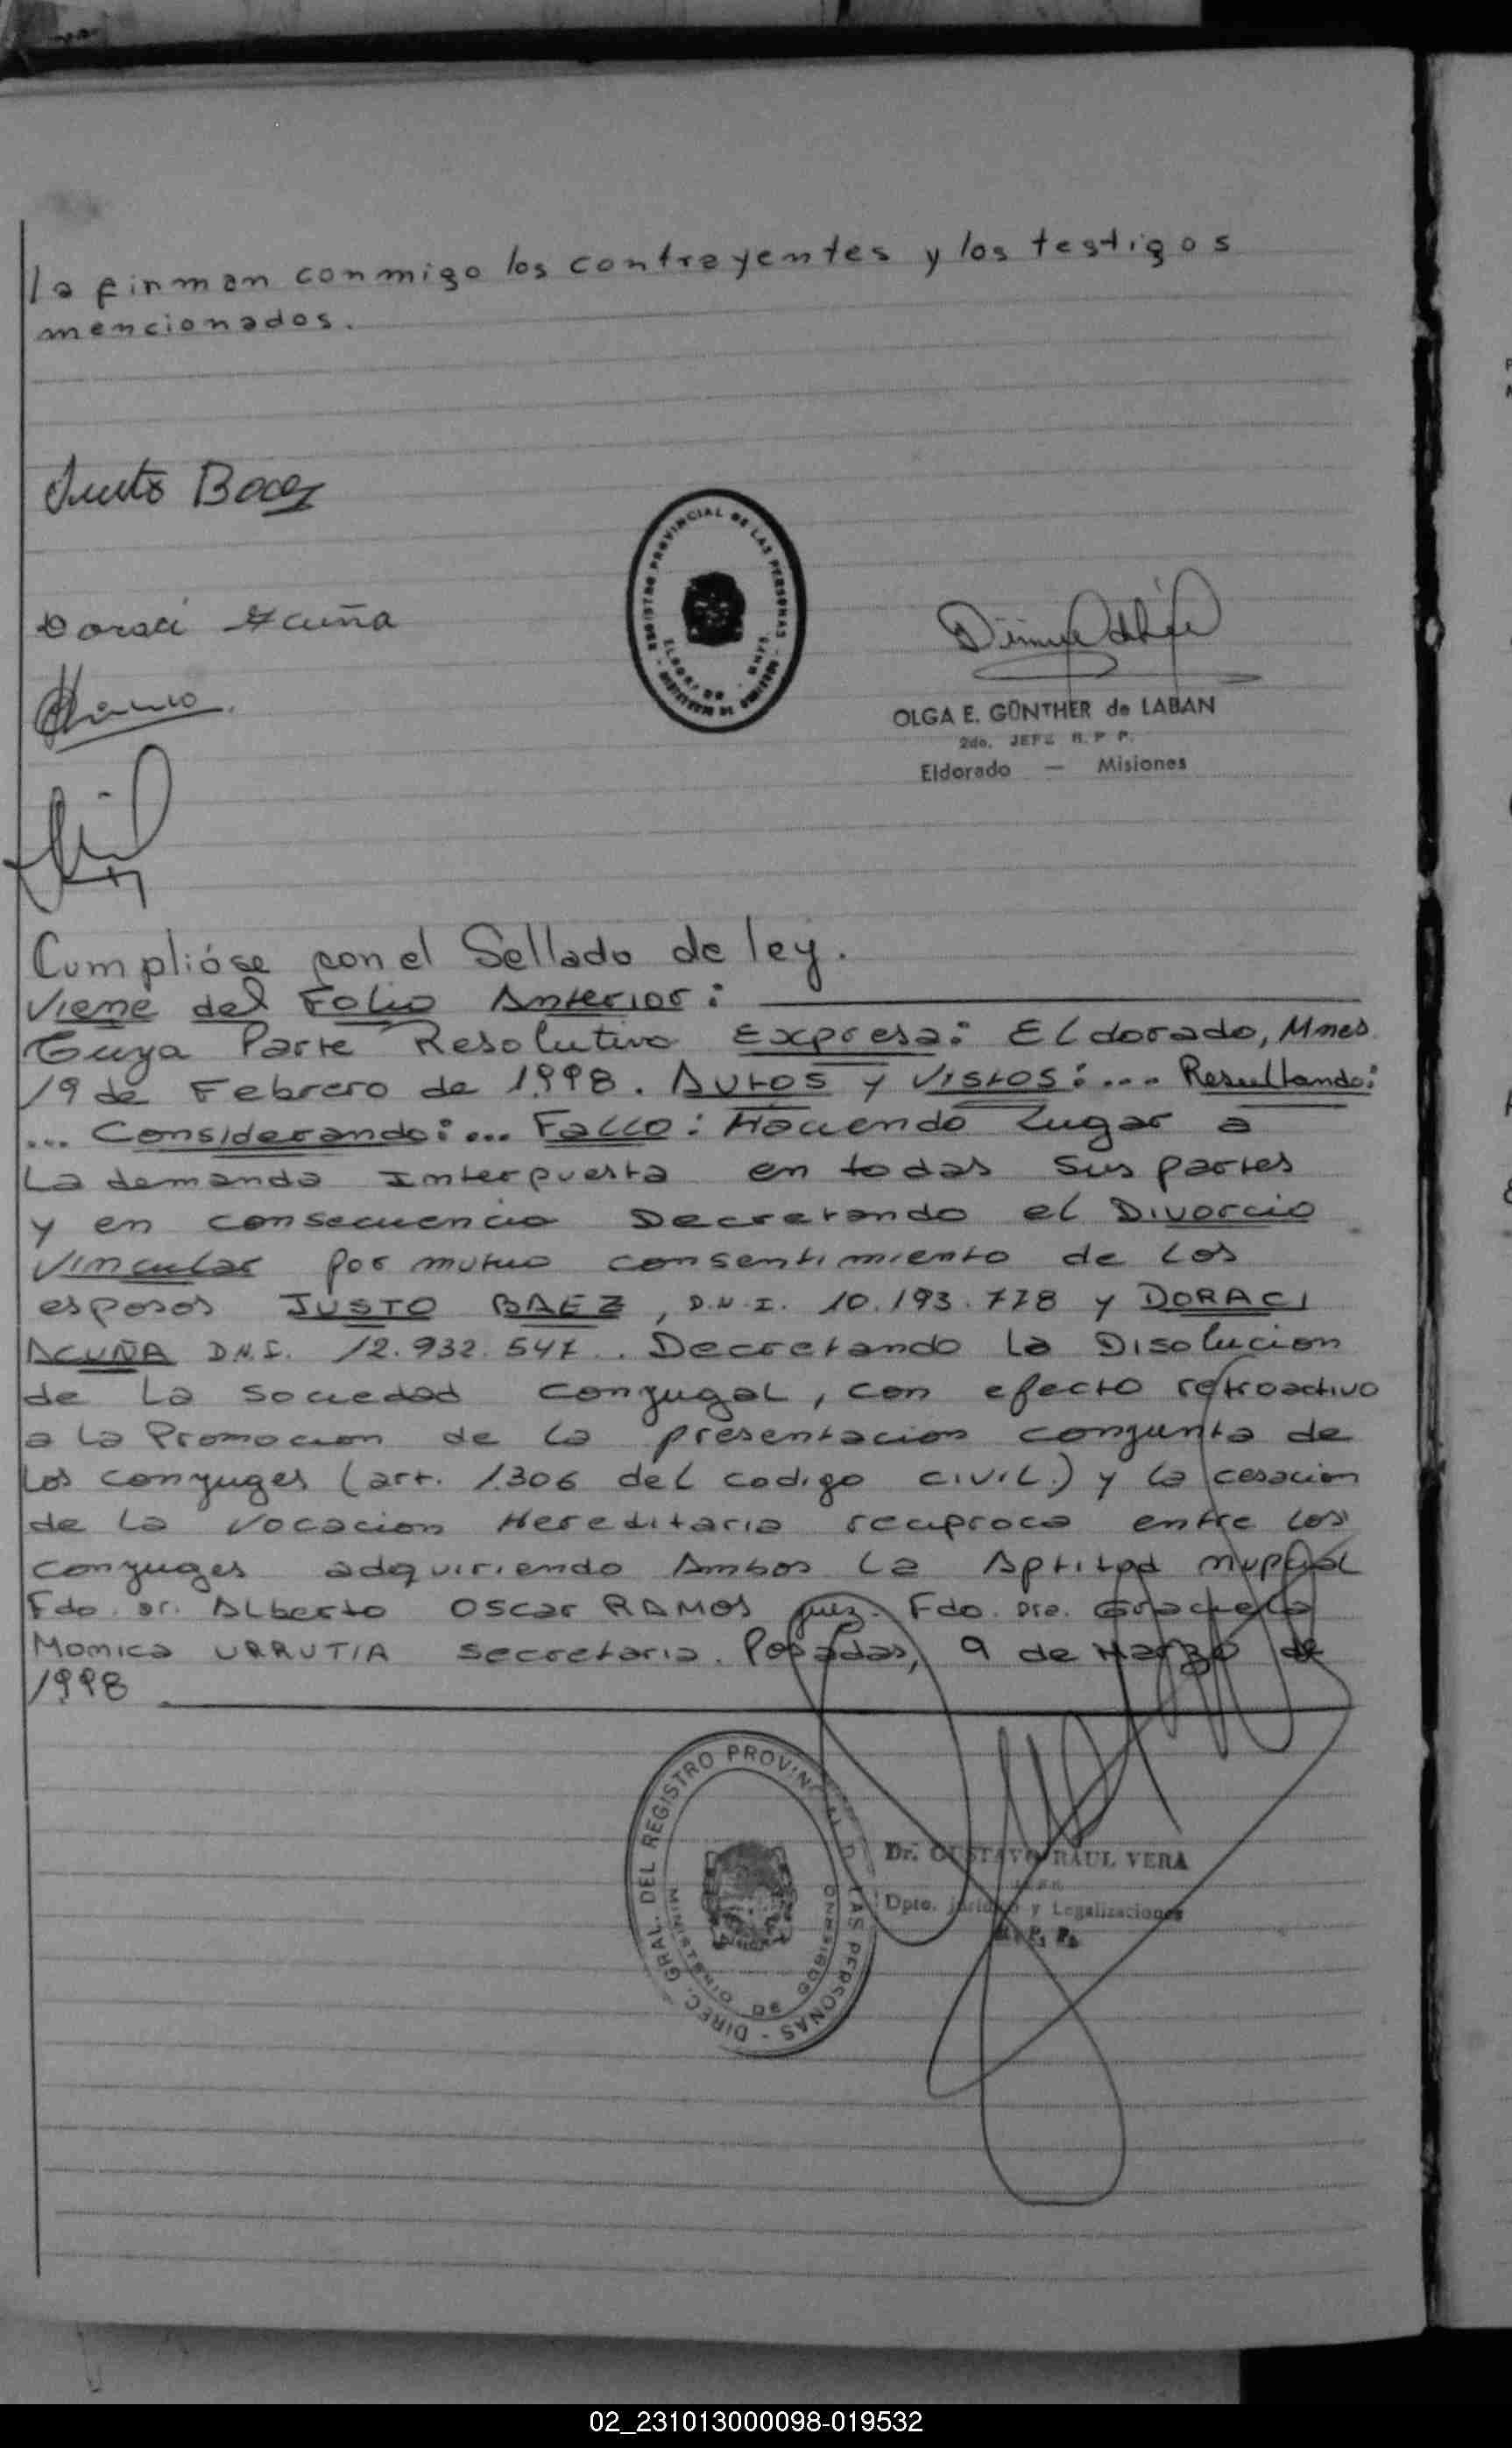 la firman conmigo los contrayentes y los testigos
mencionados.
Justo Baez
REGISTRO PROVINCIAL DE LAS PERSONAS
Doraci Acuña
OLGA E. GÜNTHER de LABAN
2do. JEFE R. P. P.
Eldorado — Misiones
Cumplióse con el Sellado de ley.
Viene del Folio Anterior:
Cuya Parte Resolutiva Expresa: ELdorado, Mnes
19 de Febrero de 1998. Autos y Vistos:... Resultando:
... Considerando:... Fallo: Haciendo Lugar a
La demanda Interpuesta en todas sus partes
y en consecuencia Decretando el Divorcio
Vincular por mutuo consentimiento de Los
esposos JUSTO BAEZ, D.N.I. 10.193.778 y DORACI
ACUÑA D.N.I. 12.932.547. Decretando La Disolucion
de La sociedad conyugal, con efecto retroactivo
a La Promocion de La presentacion conjunta de
Los conyuges (art. 1.306 del codigo civil.) y La cesacion
de La vocacion Hereditaria reciproca entre Los
conyuges adquiriendo Ambos La Aptitud nupcial
Fdo. Dr. Alberto Oscar RAMOS Juez. Fdo. Dra. Graciela
Monica URRUTIA Secretaria. Posadas, 9 de Marzo de
1998
DIREC. GRAL. DEL REGISTRO PROVINCIAL DE LAS PERSONAS
MINISTERIO DE GOBIERNO
Dr. GUSTAVO RAUL VERA
Dpto. Jurídico y Legalizaciones
R. P. P.
02_231013000098-019532